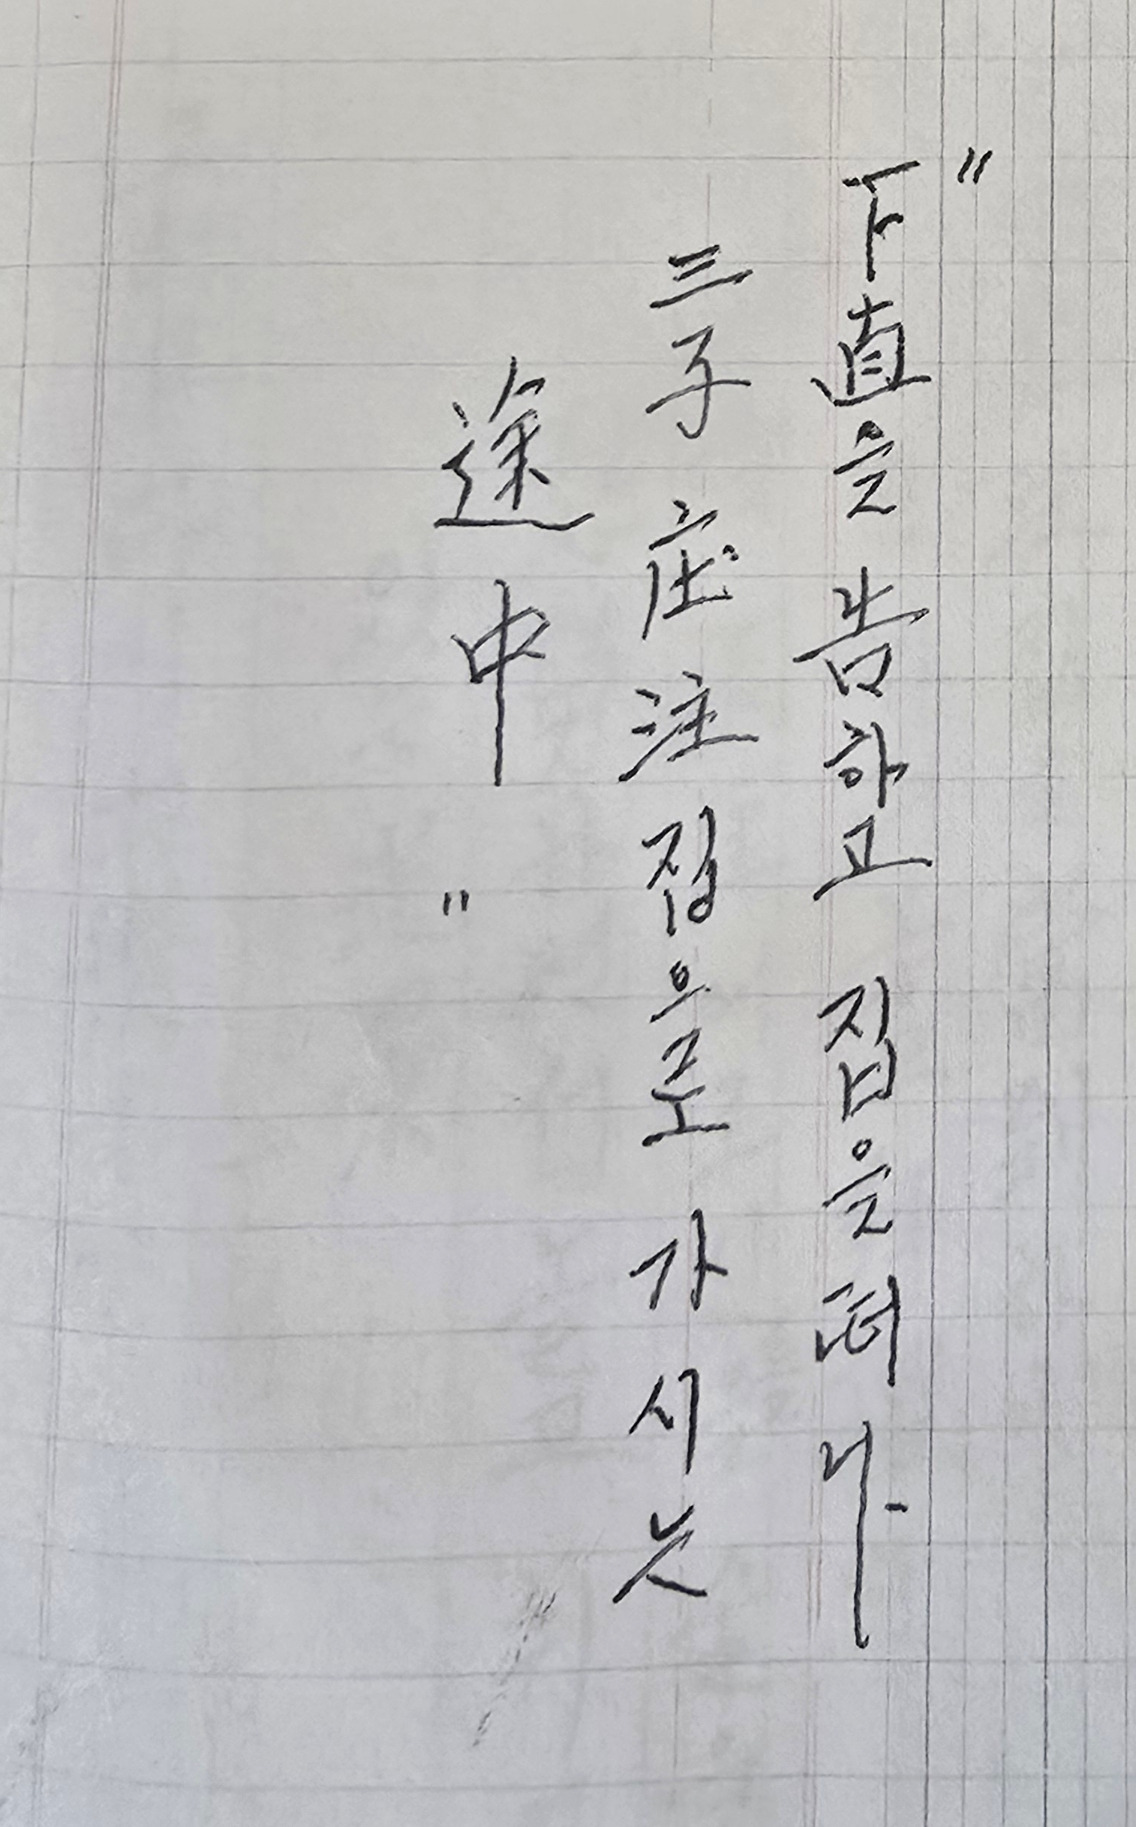 "下直을 告하고 집을 떠나
三子 庄注 집으로 가시는
途中"